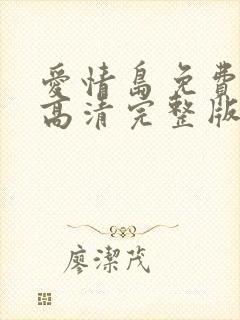 愛情島免費
高清完整版
廖潔茂